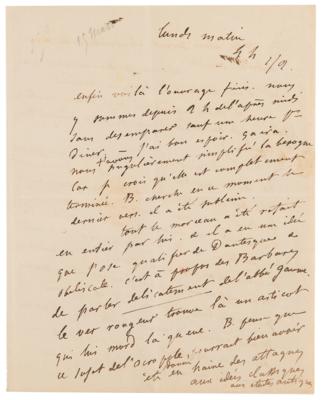 15 Mars
lundi matin
4 h 1/2.
enfin voilà l'ouvrage fini. nous
y sommes depuis 2 h de l'après midi
sans desemparer sauf une heure pr
Diner. j'ai bon espoir. ça ira.
nous avons singulièrement simplifié la besogne
car je crois qu'elle est completement
terminée. B. cherche en ce moment le
dernier vers. il a été sublime.
tout le morceau a été refait
en entier par lui. & il a eu une idée
que j'ose qualifier de Dantesque &
c'est à propos des Barbares
de parler délicatement de l'abbé Gaume.
le ver rongeur trouve là un asticot
qui lui mord la queue. B. pense que
ce sujet de l'acropole pourrait bien avoir
été en haine des attaques
aux idées classiques
aux études antiques